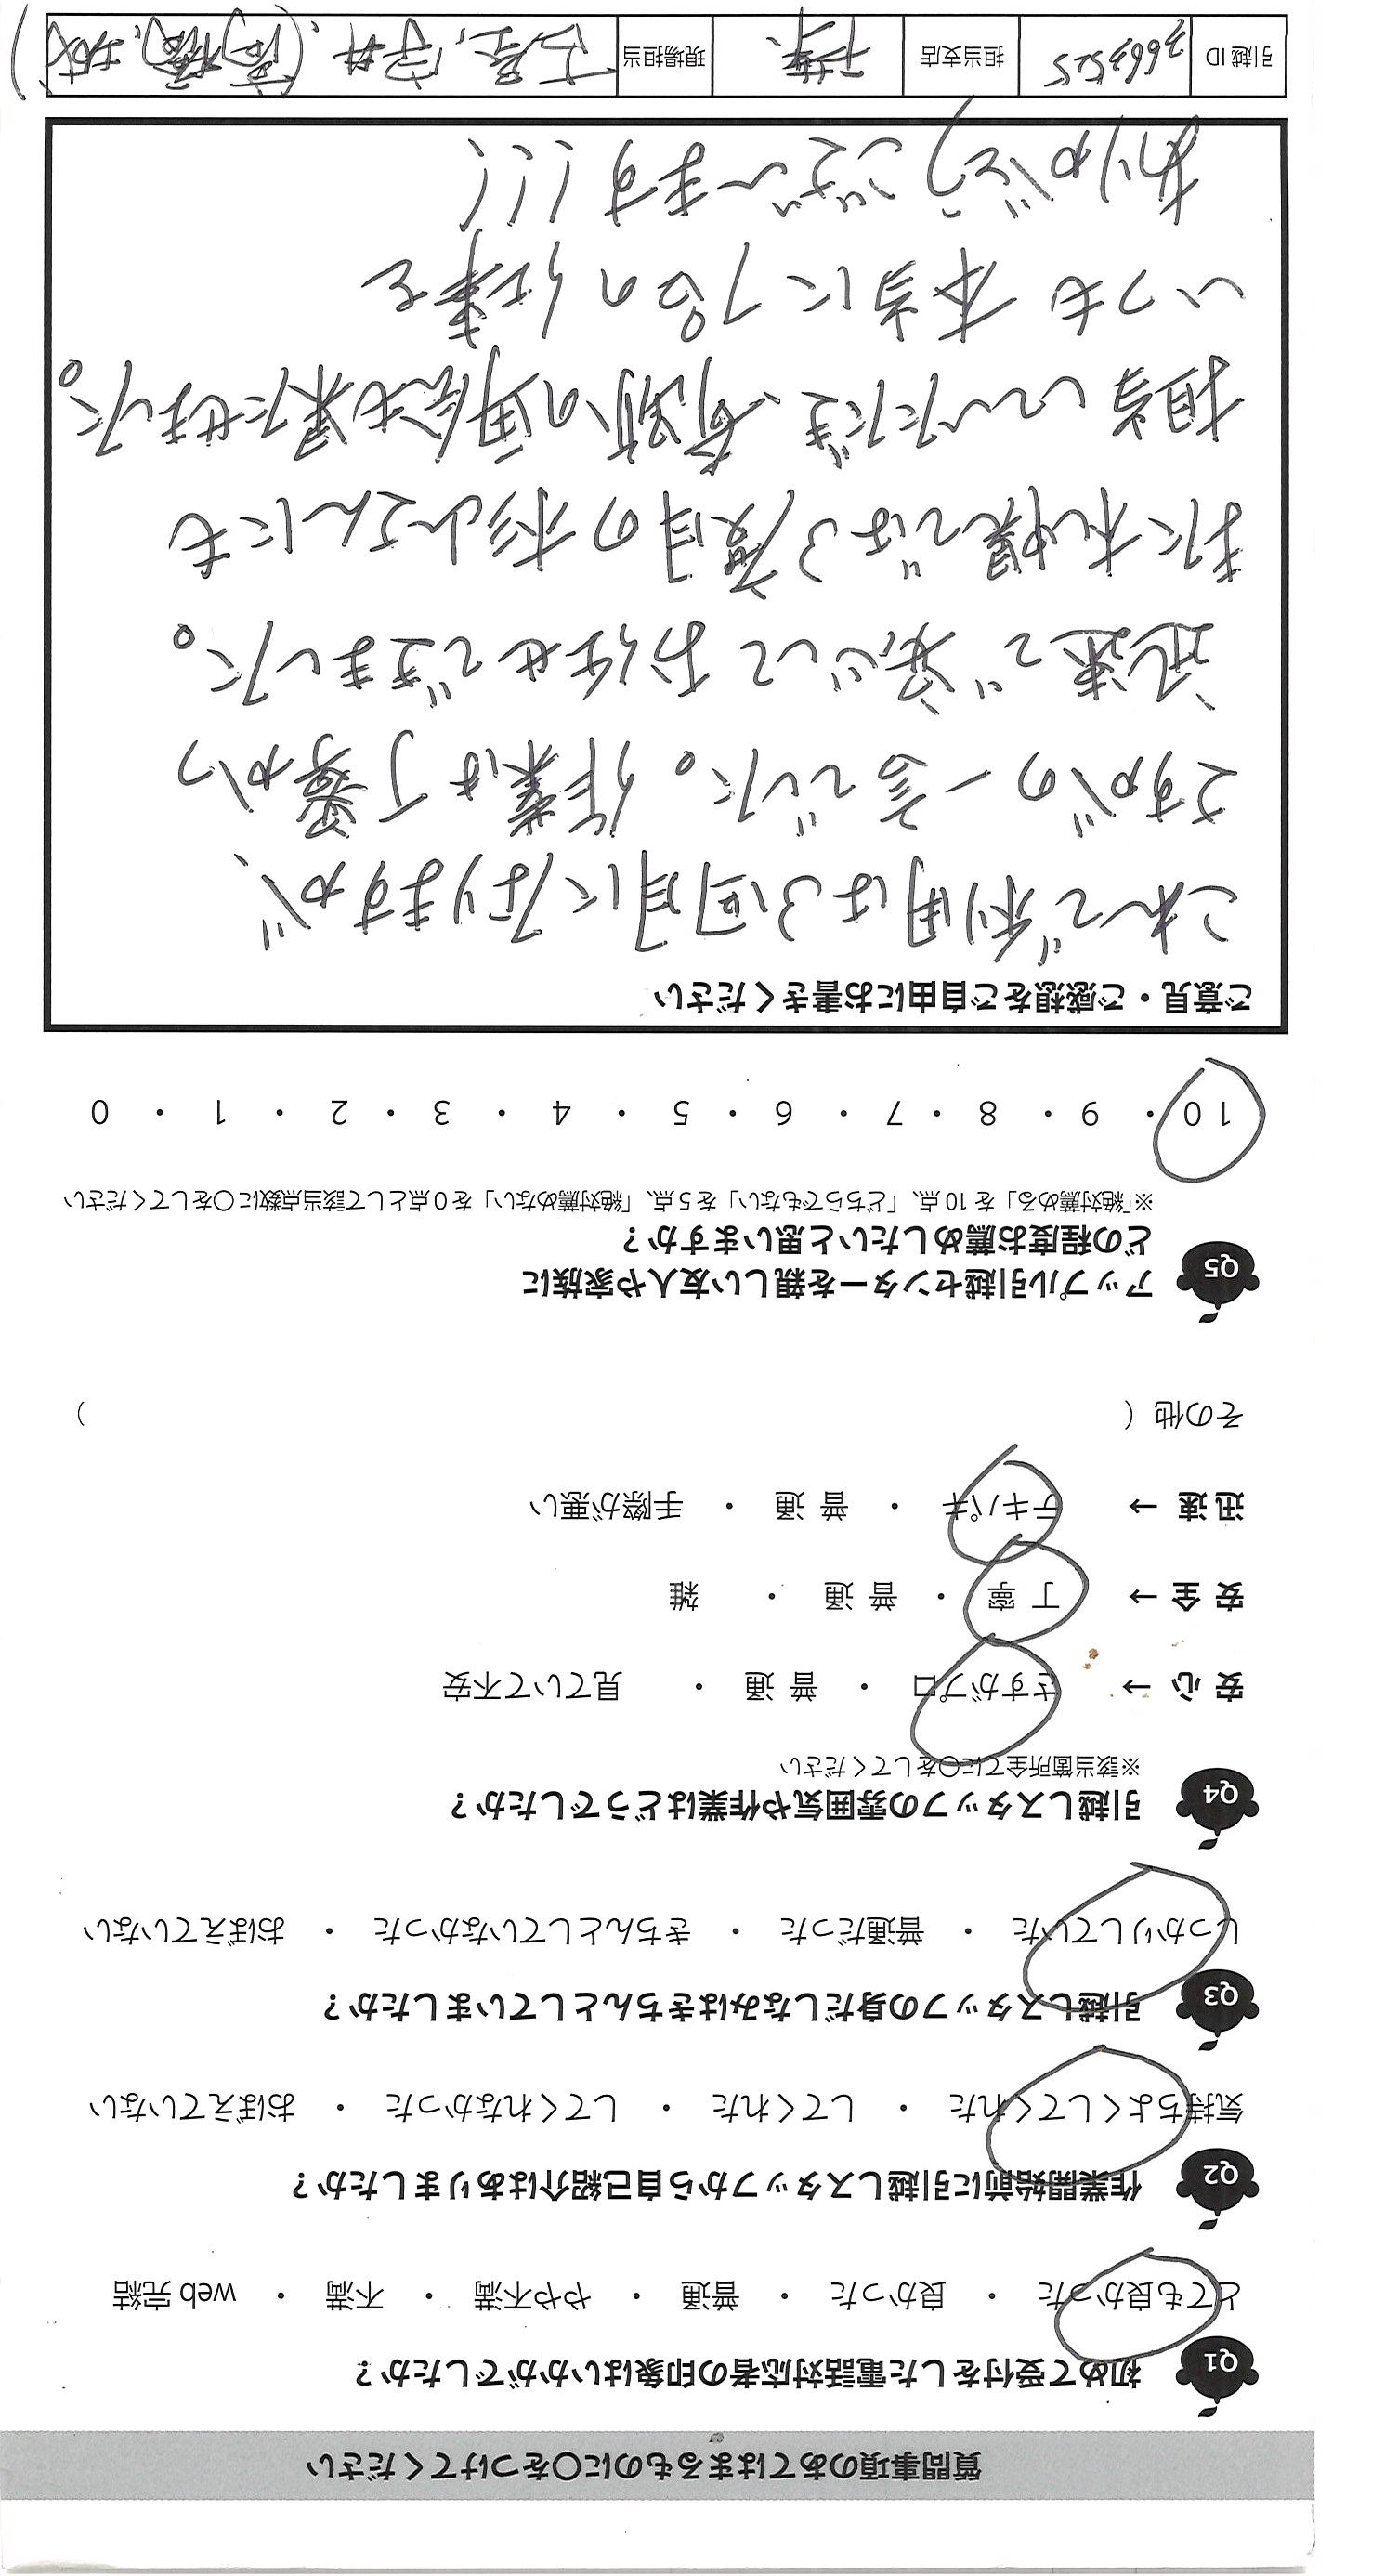 質問事項のあてはまるものに〇をつけてください
Q1 初めて受付をした電話対応者の印象はいかがでしたか？
とても良かった ・ 良かった ・ 普通 ・ やや不満 ・ 不満 ・ web完結
Q2 作業開始前に引越しスタッフから自己紹介はありましたか？
気持ちよくしてくれた ・ してくれた ・ してくれなかった ・ おぼえていない
Q3 引越しスタッフの身だしなみはきちんとしていましたか？
しっかりしていた ・ 普通だった ・ きちんとしていなかった ・ おぼえていない
Q4 引越しスタッフの雰囲気や作業はどうでしたか？
※該当箇所全てに〇をしてください
安心 → さすがプロ ・ 普通 ・ 見ていて不安
安全 → 丁寧 ・ 普通 ・ 雑
迅速 → テキパキ ・ 普通 ・ 手際が悪い
その他（ ）
Q5 アップル引越センターを親しい友人や家族に
どの程度お薦めしたいと思いますか？
※「絶対薦める」を10点、「どちらでもない」を5点、「絶対薦めない」を0点として該当点数に〇をしてください
10 ・ 9 ・ 8 ・ 7 ・ 6 ・ 5 ・ 4 ・ 3 ・ 2 ・ 1 ・ 0
ご意見・ご感想をご自由にお書きください
これで利用は3回目になりますが、
さすがの一言でした。作業は丁寧かつ
迅速で安心してお任せできました。
また札幌では3度目の杉山さんにも
担当していただき、奇跡の再会も果たせました。
いつも本当にプロの仕事を
ありがとうございます!!!
引越ID 3663525 担当支店 現場担当 宇井、(高橋、